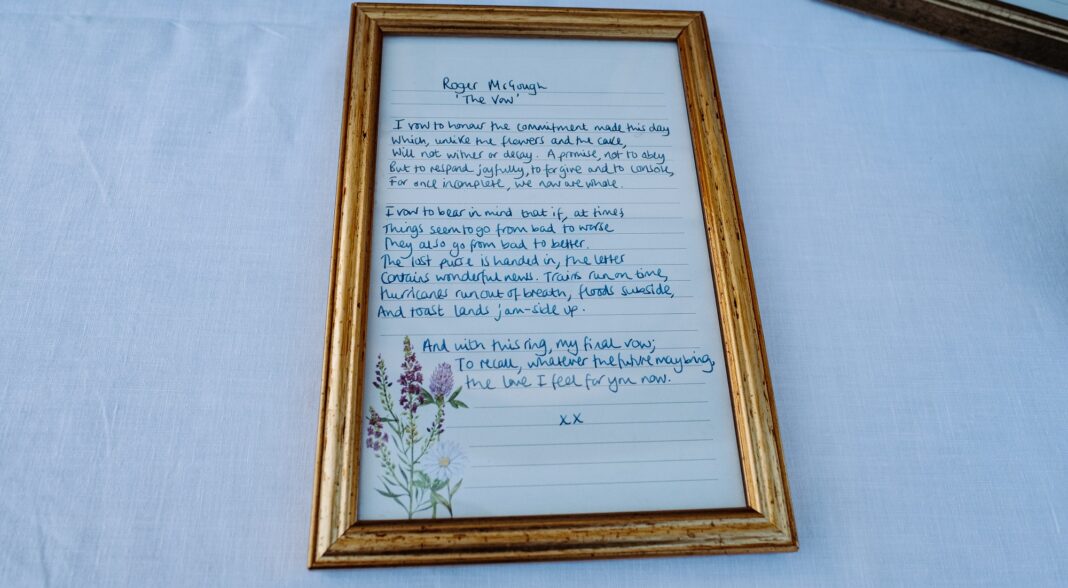 Roger McGough
'The Vow'
I vow to honour the commitment made this day
Which, unlike the flowers and the cake,
Will not wither or decay. A promise, not to obey
But to respond joyfully, to forgive and to console,
For once incomplete, we now are whole.
I vow to bear in mind that if, at times
Things seem to go from bad to worse
They also go from bad to better.
The lost purse is handed in, the letter
Contains wonderful news. Trains run on time,
Hurricanes run out of breath, floods subside,
And toast lands jam-side up.
And with this ring, my final vow;
To recall, whatever the future may bring,
the love I feel for you now.
xx